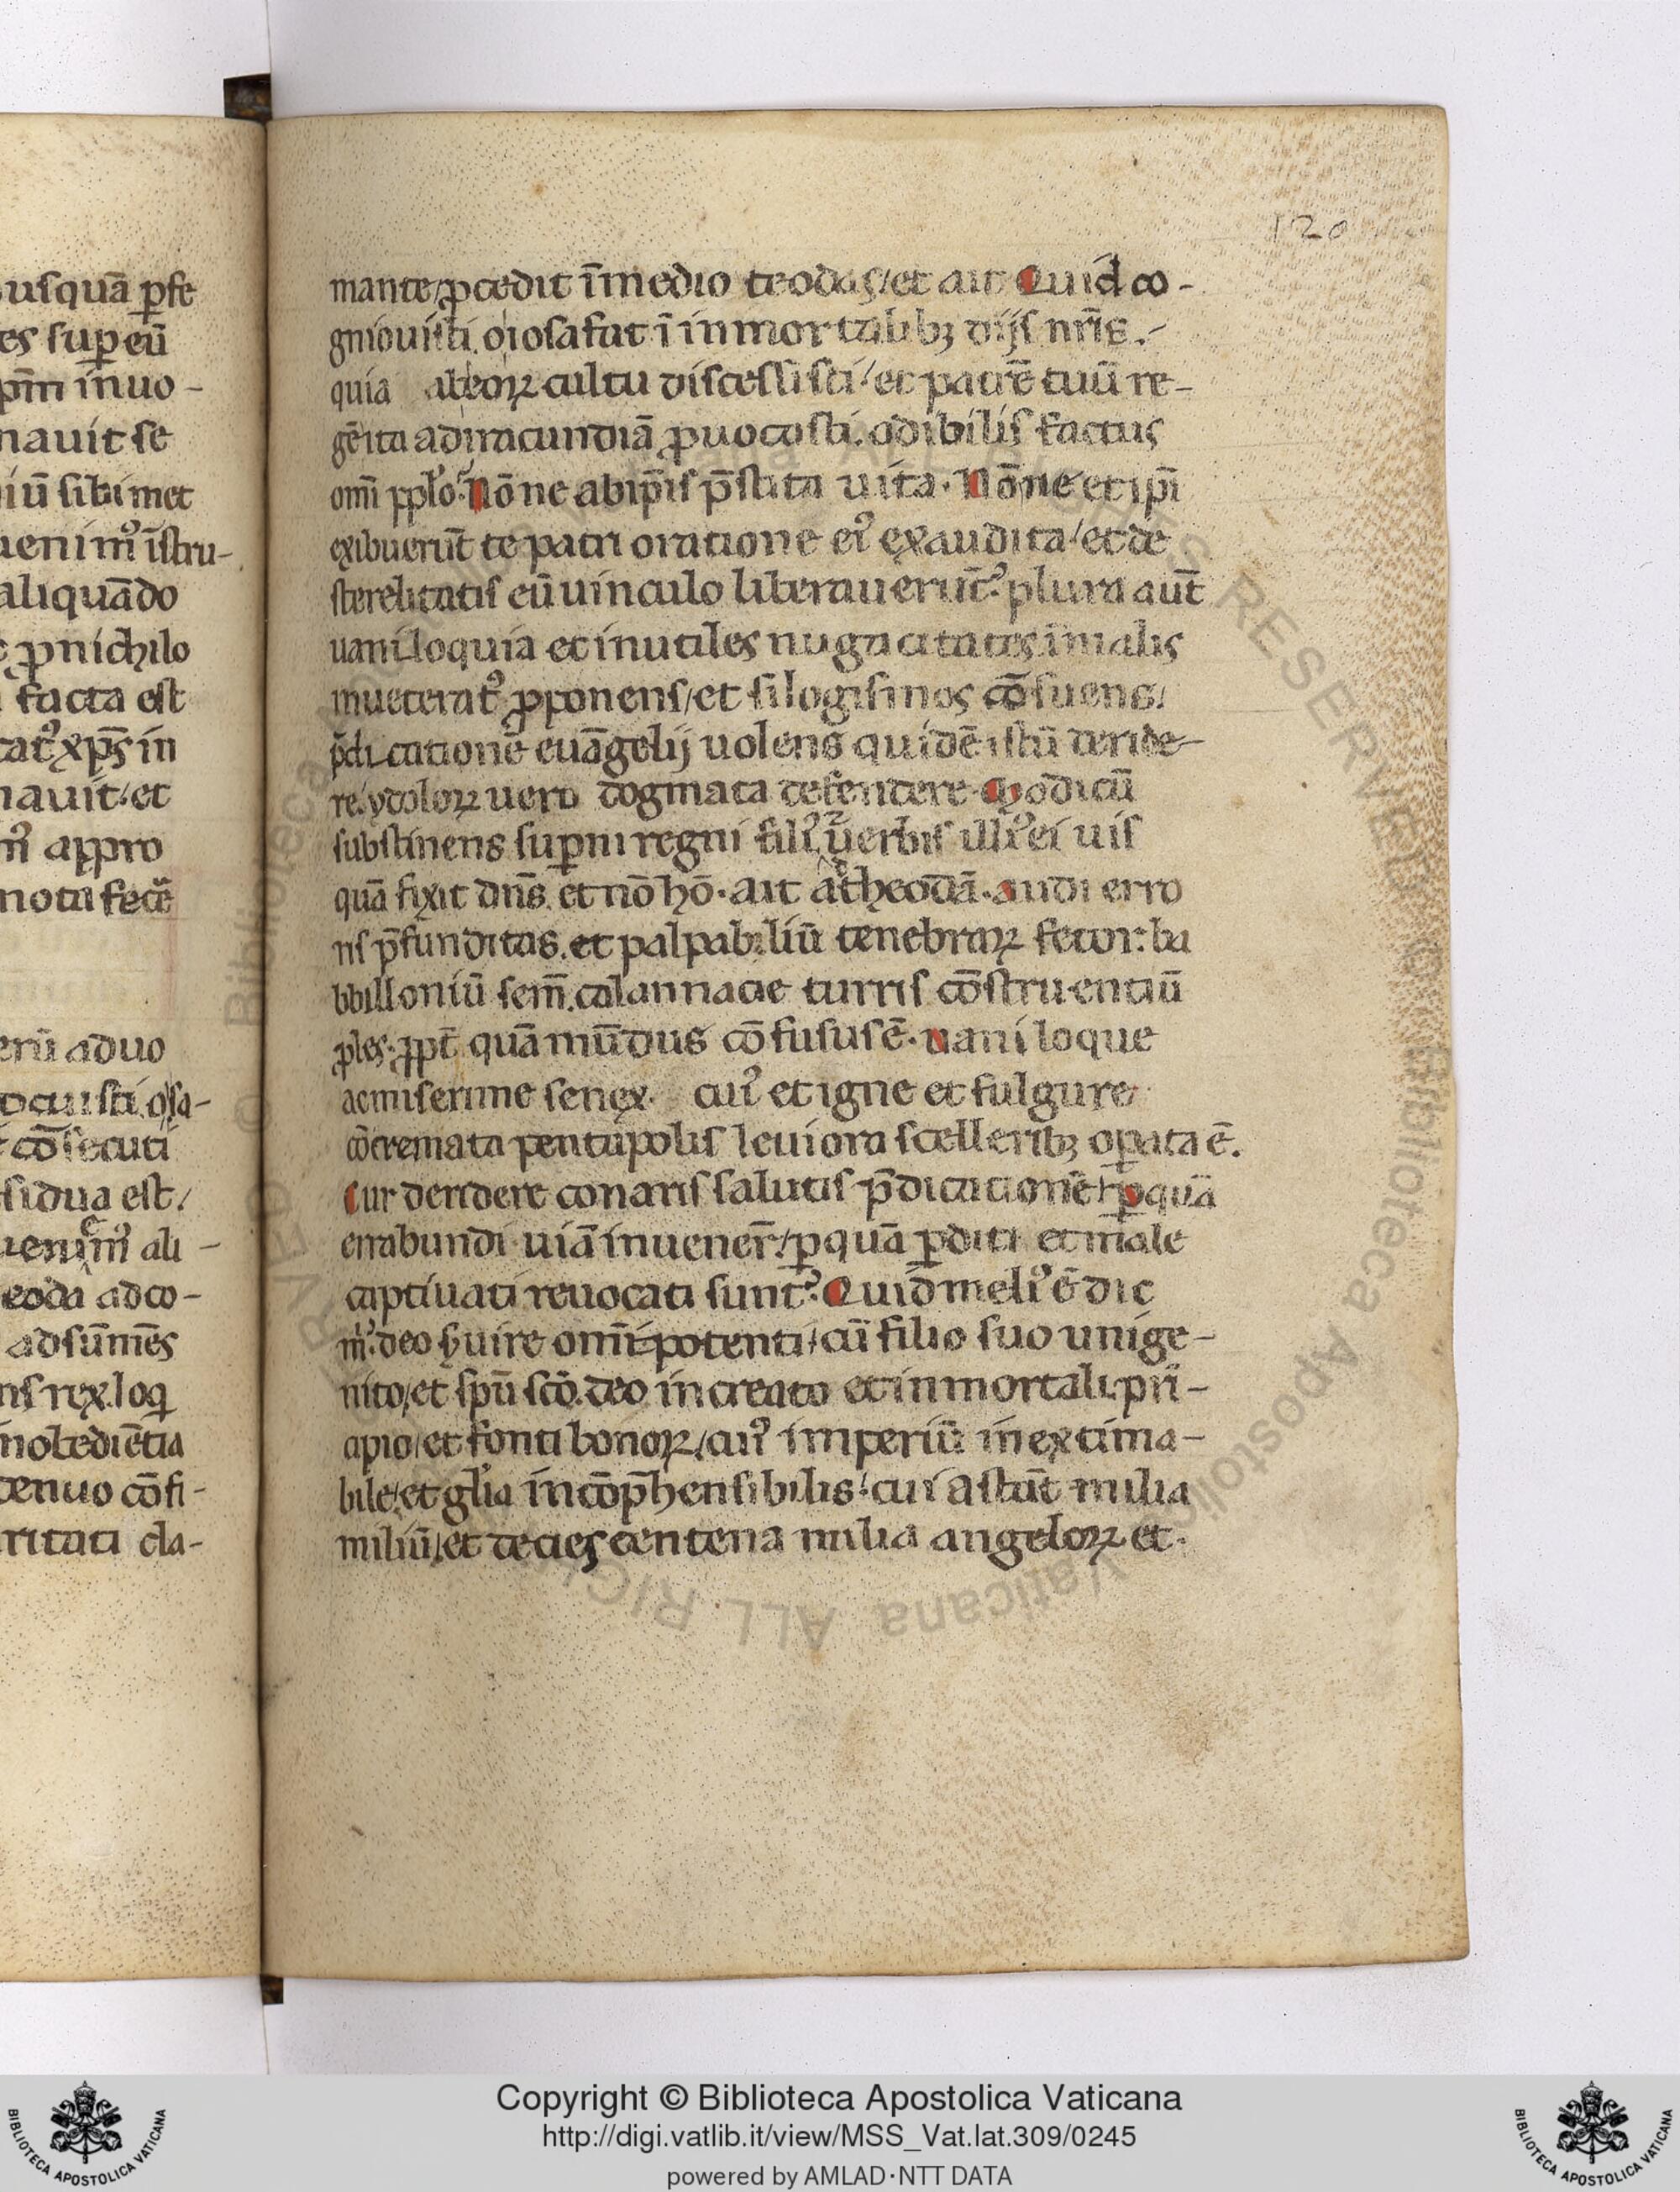 120
usquā ꝑfe
es suꝑ eū
pm̄ inuo-
nauit se
iū sibimet
uenimꝰ īstru-
aliquādo
ꝓ nichilo
facta est
catꝰ xp̄s in
nauit. et
mꝰ appro
nota fecē
erū aduo
ocasti. osa-
cōsecuti
sidua est/
uenimꝰ ali-
eoda ad co-
adsūmēs
ns rex. loq
inobediētia
tenuo cōfi-
ritati cla-
mante/ ꝓcedit ī medio teodas/ et ait Quid co-
gniouisti oiosafat ī inmortalibꝫ dijs nr̄is.
quia ab eoꝝ cultu discessisti/ et patrē tuū re-
gē ita ad iracundiā ꝓuocasti. odibilis factus
om̄i pplo. Nōne ab ip̄is p̄stita uita. Nōne et ip̄i
exibuerūt te patri oratione eiꝰ exaudita/ et de
sterelitatis eū uinculo liberauerūt. plura aūt
uaniloquia et inutiles nugacitates ī malis
mueteratꝰ ꝓponens/ et silogismos cōsuens/
p̄dicationē euāgelij uolens quidē istū deride-
re. ydoloꝝ uero dogmata defendere. Modicū
substinens suꝑni regni filiꝰ uerbis illiꝰ ei uis
quā fixit dn̄s. et nō hō. ait ad theodā. audi erro
ris p̄funditas. et palpabiliū tenebraꝝ fetor: ba
bbilloniū sem̄. calannacie turris cōstruentiū
ples. ꝓpt̄ quā mūdus cōfusus ē. uaniloque
ac miserime senex. cuiꝰ et igne et fulgure
cōcremata pentapolis leuiora scelleribꝫ oꝑata ē.
Cur deridere conaris salutis p̄dicationē ꝑ quā
errabundi uiā inuener̄/ ꝑ quā ꝑditi et male
captiuati reuocati sunt. Quid meliꝰ ē dic
m. deo ẜuire om̄ipotenti/ cū filio suo unige-
nito/ et spū scō. deo increato et inmortali. pri-
cipio/ et fonti bonoꝝ/ cuiꝰ imperiū inextima-
bile/ et gl̄ia incōp̄hensibilis/ cui astāt milia
miliū/ et decies centena milia angeloꝝ et.
Copyright © Biblioteca Apostolica Vaticana
http://digi.vatlib.it/view/MSS_Vat.lat.309/0245
powered by AMLAD·NTT DATA
BIBLIOTECA APOSTOLICA VATICANA
BIBLIOTECA APOSTOLICA VATICANA